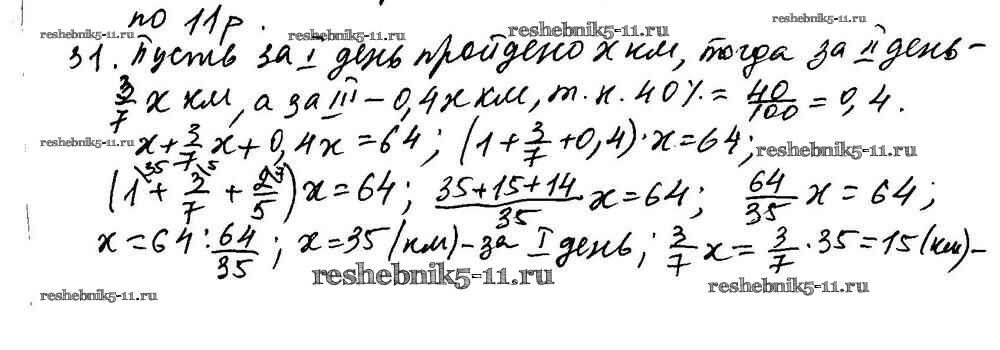 по 11р.
reshebnik5-11.ru reshebnik5-11.ru
31. Пусть за I день пройдено x км, тогда за II день –
3/7 x км, а за III – 0,4x км, т. к. 40% = 40/100 = 0,4.
reshebnik5-11.ru
x + 3/7 x + 0,4x = 64; (1 + 3/7 + 0,4) · x = 64;
reshebnik5-11.ru
(1\35 + 3/7\5 + 2/5\7) x = 64; (35+15+14)/35 x = 64; 64/35 x = 64;
x = 64 : 64/35; x = 35 (км) – за I день; 3/7 x = 3/7 · 35 = 15 (км) –
reshebnik5-11.ru
reshebnik5-11.ru reshebnik5-11.ru